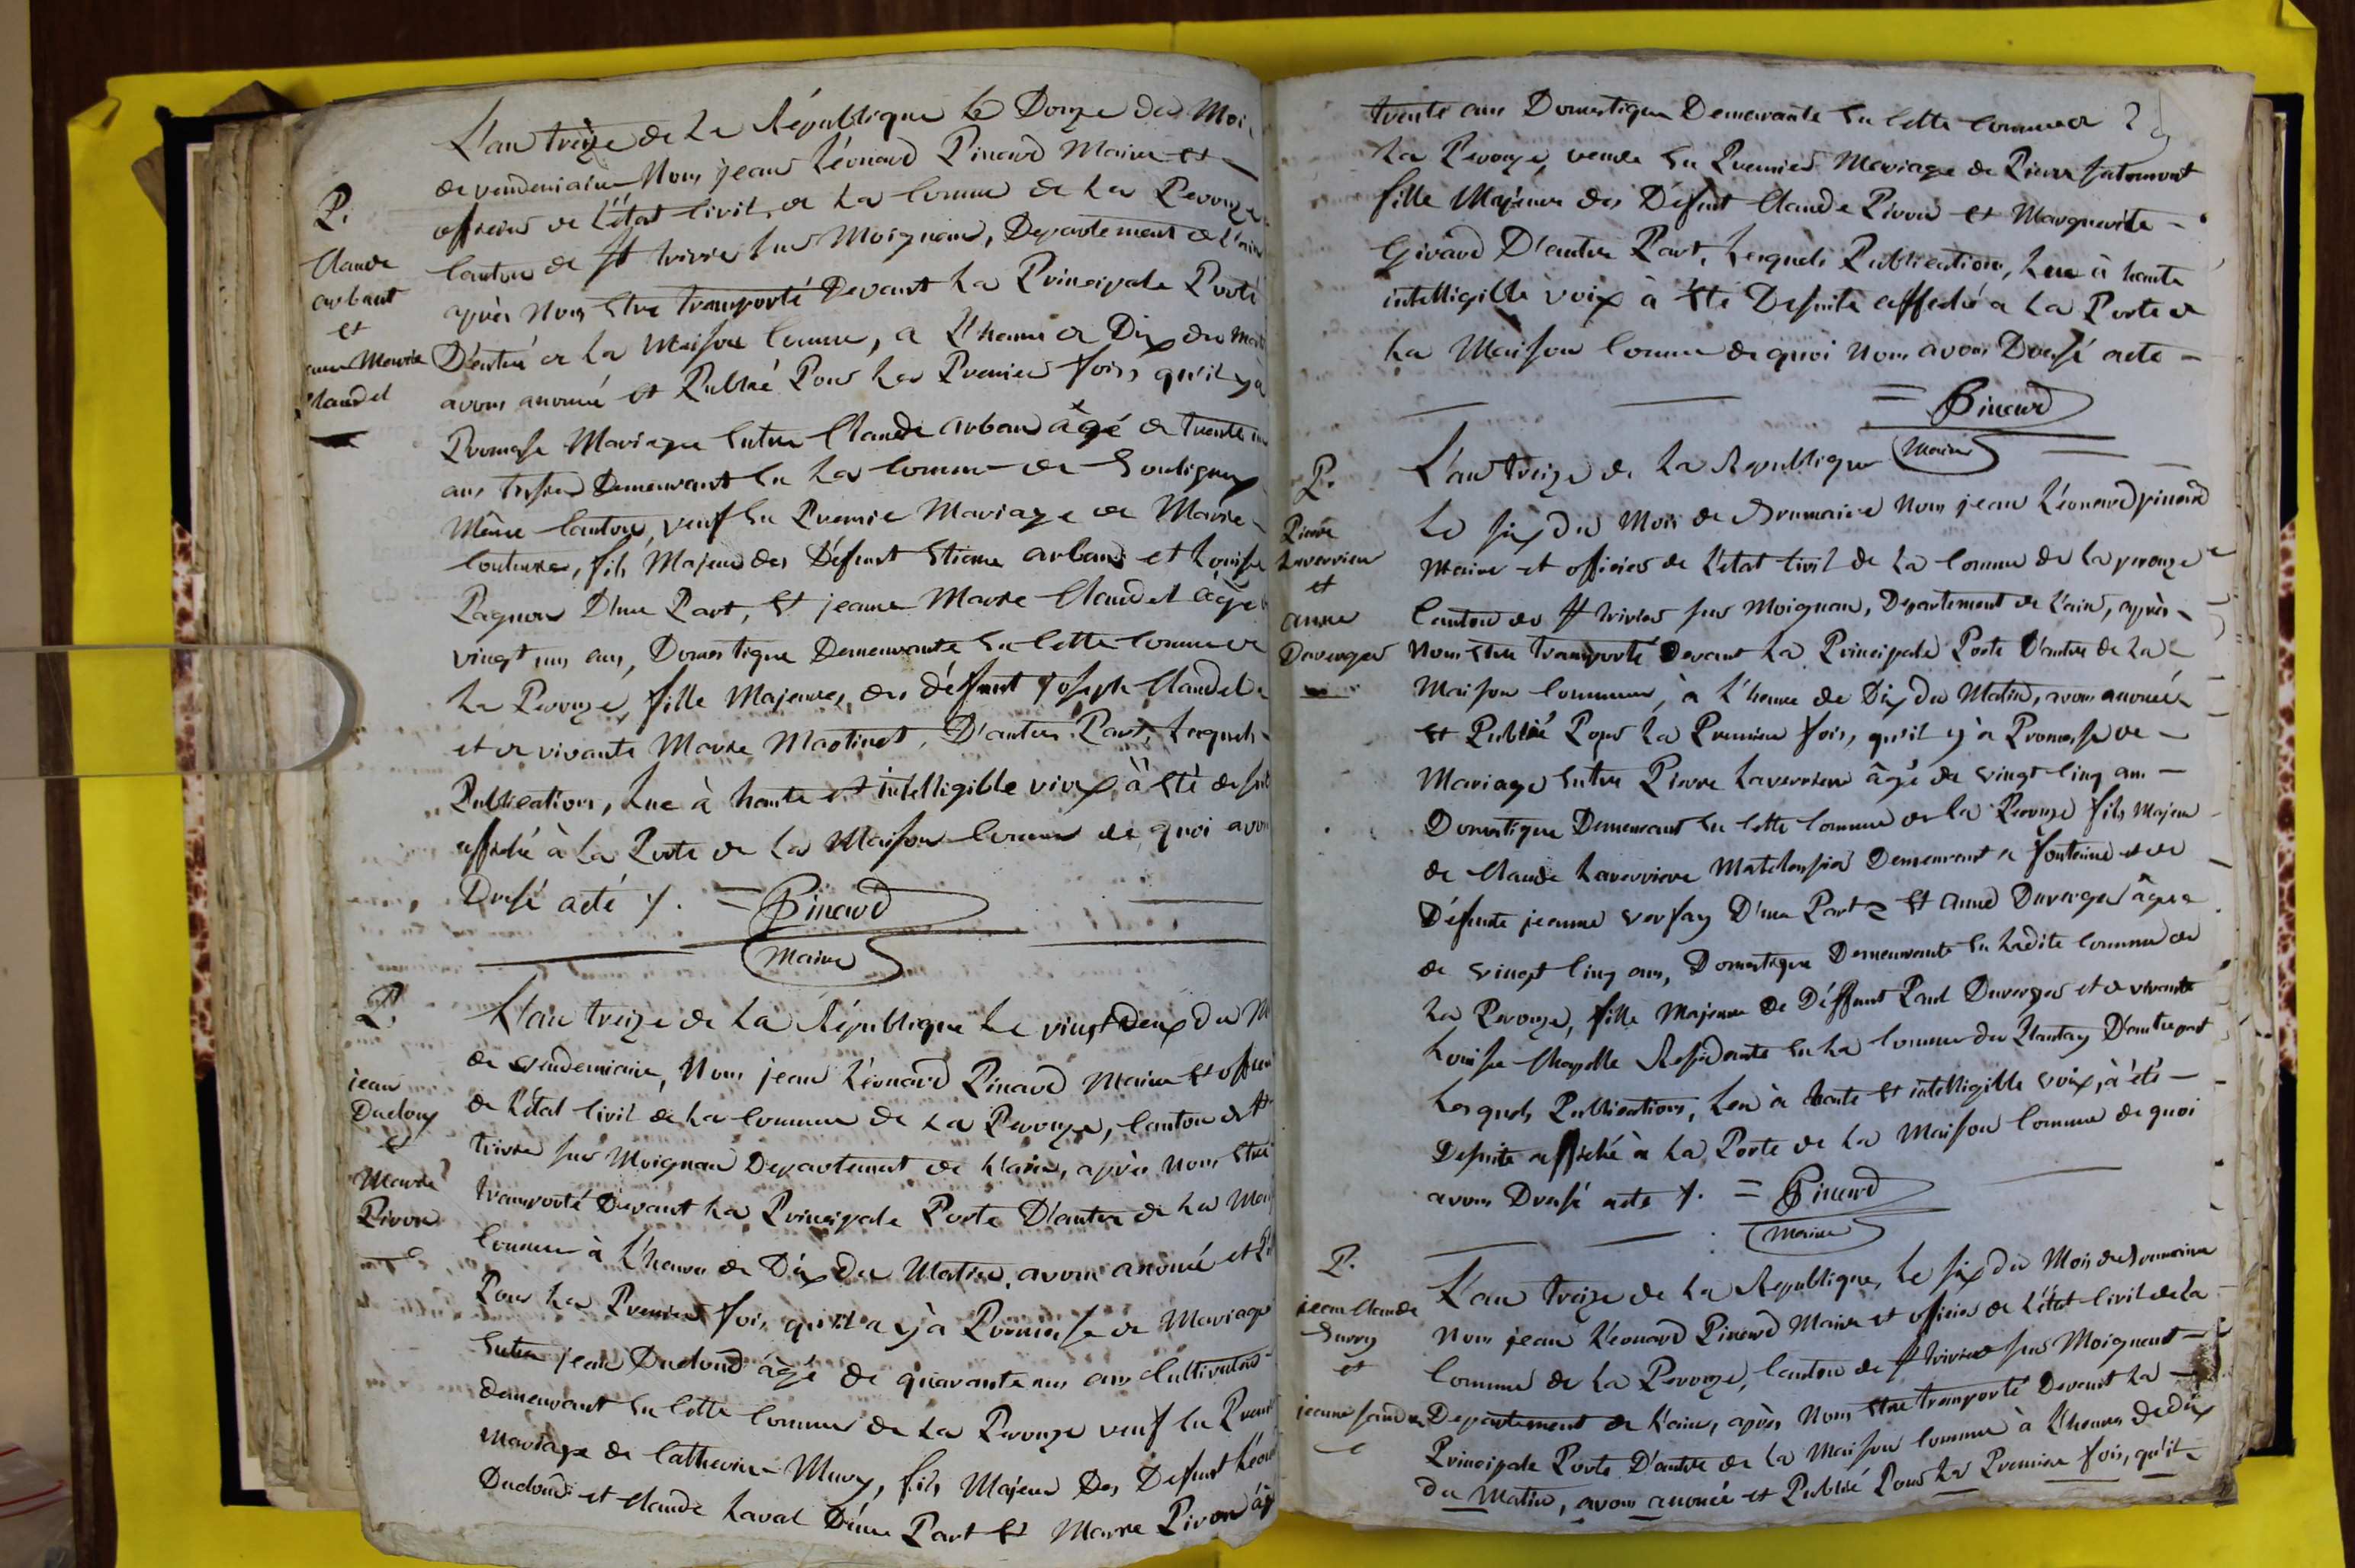 L'an treize de La République Le Douze du Moi
de vendemiaire Nous jean Léonard Pinard Maire et
officier de L'état Civil de La Comune de La Perouze
Canton de St trivier sur Moignan, Departement de L'ain
après Nous Etre transporté Devant La Principale Porte
D'entré de La Maison Comune, a L'heure de Dix du mat
avons anoncé et Publié Pour La Premier fois, qu'il y a
Promesse Mariage Entre Claude arband âgé de trente
ans Demeurant En La Comune de Souligneux
Même Canton, veuf En Premie Mariage de Marie
Couturier, fils Majeur des Défunt Etiene arband et Louise
Pagnon D'une Part, Et jeanne Marie Claudel âgé
vingt ans, Domestique Demeurante En Cette Comune de
La Perouze, fille Majeure, des déffunt joseph Claudel
et de vivante Marie Martinet, D'autre Part, Lesquels
Publications, Lue à haute et intelligible voix, à Eté de suit
affiché à La Porte de La Maison Comune de quoi avon
Dresé acte /. = Pinard
Maire
P.
Claude
arbant
et
Marie
Claudel
L'an treize de La République Le vingt Deux du M
de vendemiaire, Nous jean Léonard Pinard Maire Et officie
de L'état Civil de La Comune de La Perouze, Canton de St
trivier sur Moignan Departement de L'ain, après Nous Etre
transporté Devant La Principale Porte D'antre de La Mai
Comune à L'heure de Dix du Matin, avons anoncé et P
Pour La Premier fois, qu'il a y à Promesse de Mariage
Entre jean Ducloud âgé de quarante ans Cultivateur
demeurant En Cette Comune de La Perouze veuf En Premi
Mariage de Catherine Mury, fils Majeur Des Defunt Léon
Ducloud et Claude Laval D'une Part Et Marie Pivon âg
P.
jean
Ducloux
et
Marie
Pivon
trente ans Domestique Demeurante En Cette Comune de
La Perouze, veuve En Premier Mariage de Pierre
fille Majeure des Défunt Claude Pivon et Marguerite
Girard D'autre Part, Lesquels Publication, Lue à haute
intelligible voix à Eté Desuite affiché a La Porte de
La Maison Comune de quoi Nous avons Dresé acte
= Pinard
Maire
L'an treize de La Republique
Le six du Mois de Brumaire Nous jean Léonard pinard
Maire et officier de L'etat Civil de La Comune de La perouze
Canton de St trivier sur Moignan, Departement de L'ain, après
Nous Etre transporté Devant La Principale Porte D'antre de La
Maison Commune, à L'heure de Dix du Matin, avons anoncé
Et Publié Pour La Premiere fois, qu'il y à Promesse de
Mariage Entre Pierre Laverriere âgé de vingt Cinq ans
Domestique Demeurant En Cette Comune de La Perouze fils Majeur
de Claude Laverriere Demeurant a fontaine et de
Défunte jeanne D'une Part Et anne Duverger âgée
de vingt Cinq ans, Domestique Demeurante En Ladite Comune de
La Perouze, fille Majeure de Déffunt Paul Duverger et de vivante
Louise Chapelle Residente En La Comune du Plantay D'autre part
Lesquels Publications, Leu à haute Et intelligible voix, à été
Desuite affiché à La Porte de La Maison Comune de quoi
avons Dresé acte /. = Pinard
Maire
P.
Pierre
Laverriere
et
anne
Duverger
L'an treize de La Republique, Le six du Mois de Brumaire
Nous jean Léonard Pinard Maire et officier de L'état Civil de La
Comune de La Perouze, Canton de St trivier sur Moignant
Departement de L'ain, après Nous Etre transporté Devant La
Principale Porte D'antre de La Maison Comune à L'heure de dix
du Matin, avons anoncé et Publié Pour La Premiere fois, qu'il
P.
jean Claude
et
jeanne